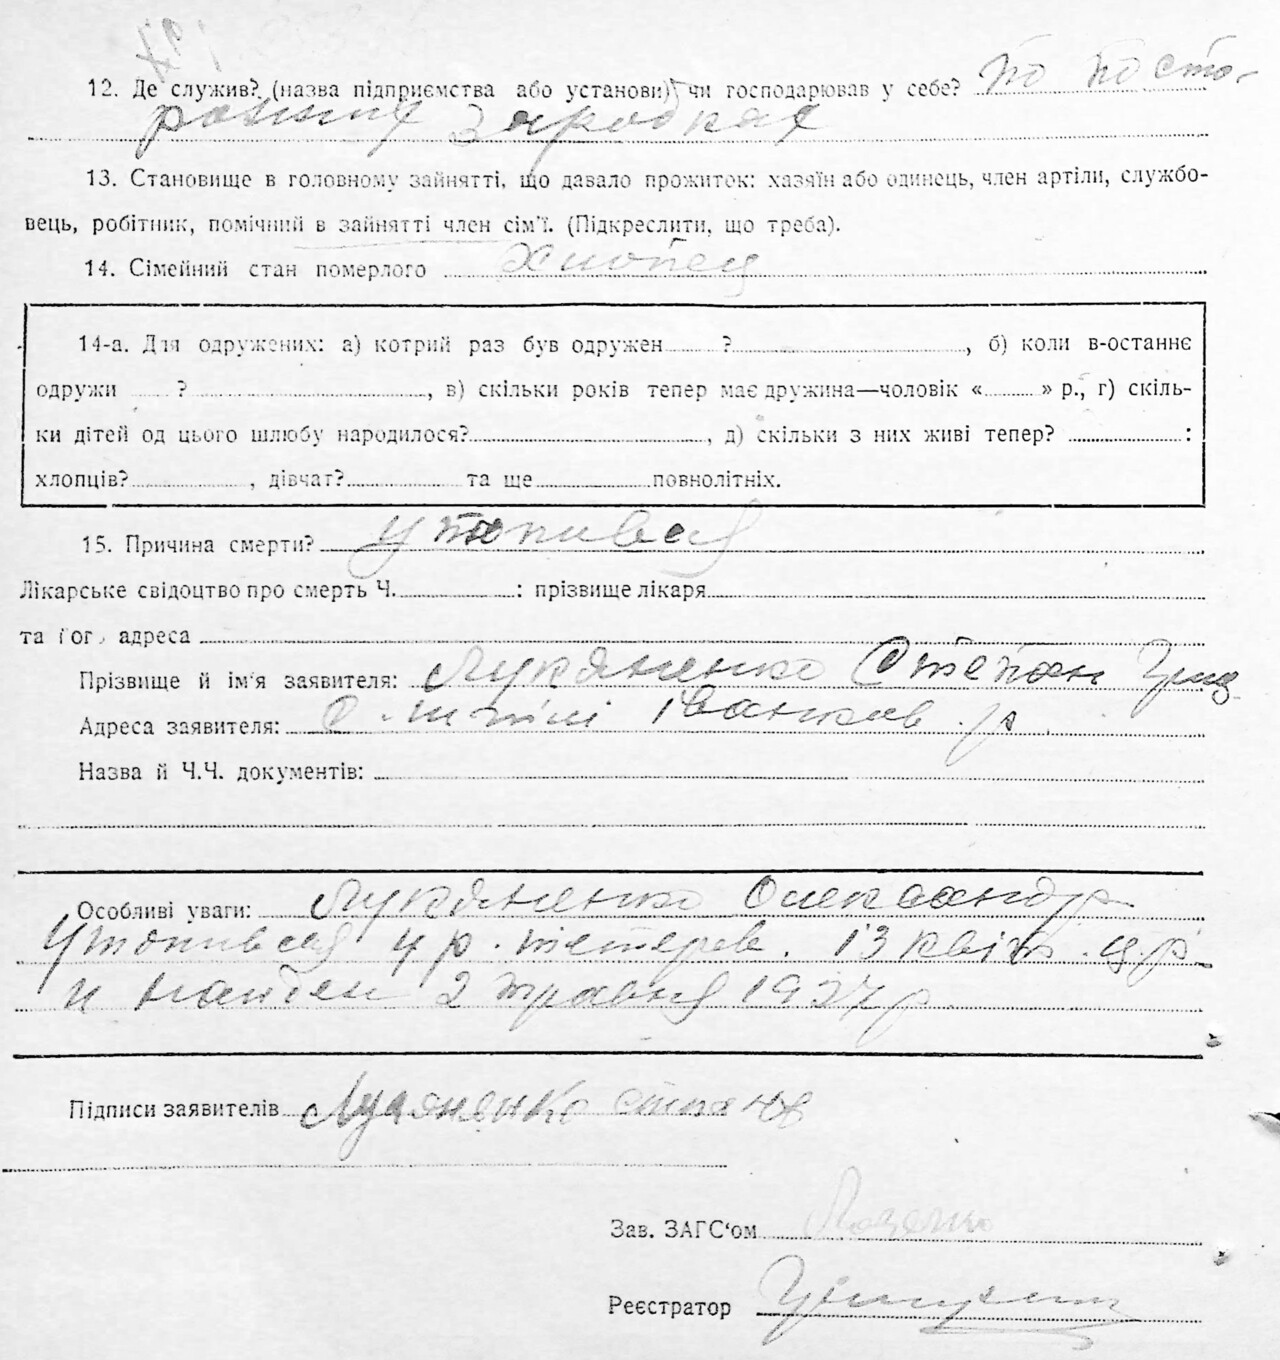 12. Де служив? (назва підприємства або установи) чи господарював у себе? по посто-
ронних заробках
13. Становище в головному зайнятті, що давало прожиток: хазяїн або одинець, член артіли, службо-
вець, робітник, помічний в зайнятті член сім'ї. (Підкреслити, що треба).
14. Сімейний стан померлого хлопец
14-а. Для одружених: а) котрий раз був одружен ? , б) коли в-останнє
одружи ? , в) скільки років тепер має дружина—чоловік « » р., г) скіль-
ки дітей од цього шлюбу народилося? , д) скільки з них живі тепер? :
хлопців? , дівчат? та ще повнолітніх.
15. Причина смерти? утопився
Лікарське свідоцтво про смерть Ч. : прізвище лікаря
та його адреса
Прізвище й ім'я заявителя: Лукяненко Степан Гриц
Адреса заявителя: с. Іванков. р
Назва й Ч.Ч. документів:
Особливі уваги: Лукяненко Олександр
утопився у р. тетерев. 13 квітн. ц.р.
и найден 2 травня 1927 р
Підписи заявителів Лукяненко степанов
Зав. ЗАГС'ом
Реєстратор